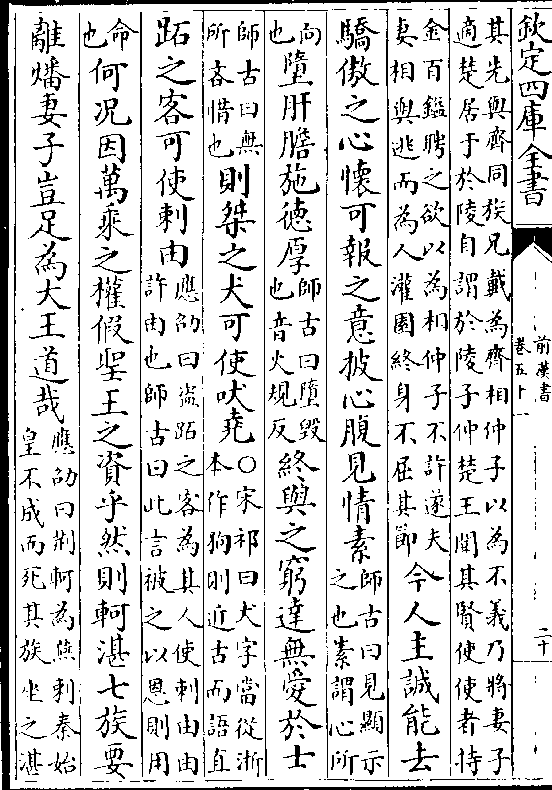 欽定四庫全書
前漢書
卷五十一
二十
其先與齊同族兄戴為齊相仲子以為不義乃將妻子
適楚居于於陵自謂於陵子仲楚王聞其賢使使者持
金百鎰聘之欲以為相仲子不許遂夫
妻相與逃而為人灌園終身不屈其節
今人主誠能去
驕傲之心懷可報之意披心腹見情素
師古曰見顯示
之也素謂心所
向
也
墮肝膽施德厚
師古曰墮毀
也音火規反
終與之窮達無愛於士
師古曰無
所吝惜也
則桀之犬可使吠堯
○宋祁曰犬字當從浙
本作狗則近古而語直
跖之客可使刺由
應劭曰盜跖之客為其人使刺由由
許由也師古曰此言被之以恩則用
命
也
何況因萬乘之權假聖王之資乎然則軻湛七族要
離燔妻子豈足為大王道哉
應劭曰荆軻為燕刺秦始
皇不成而死其族坐之湛